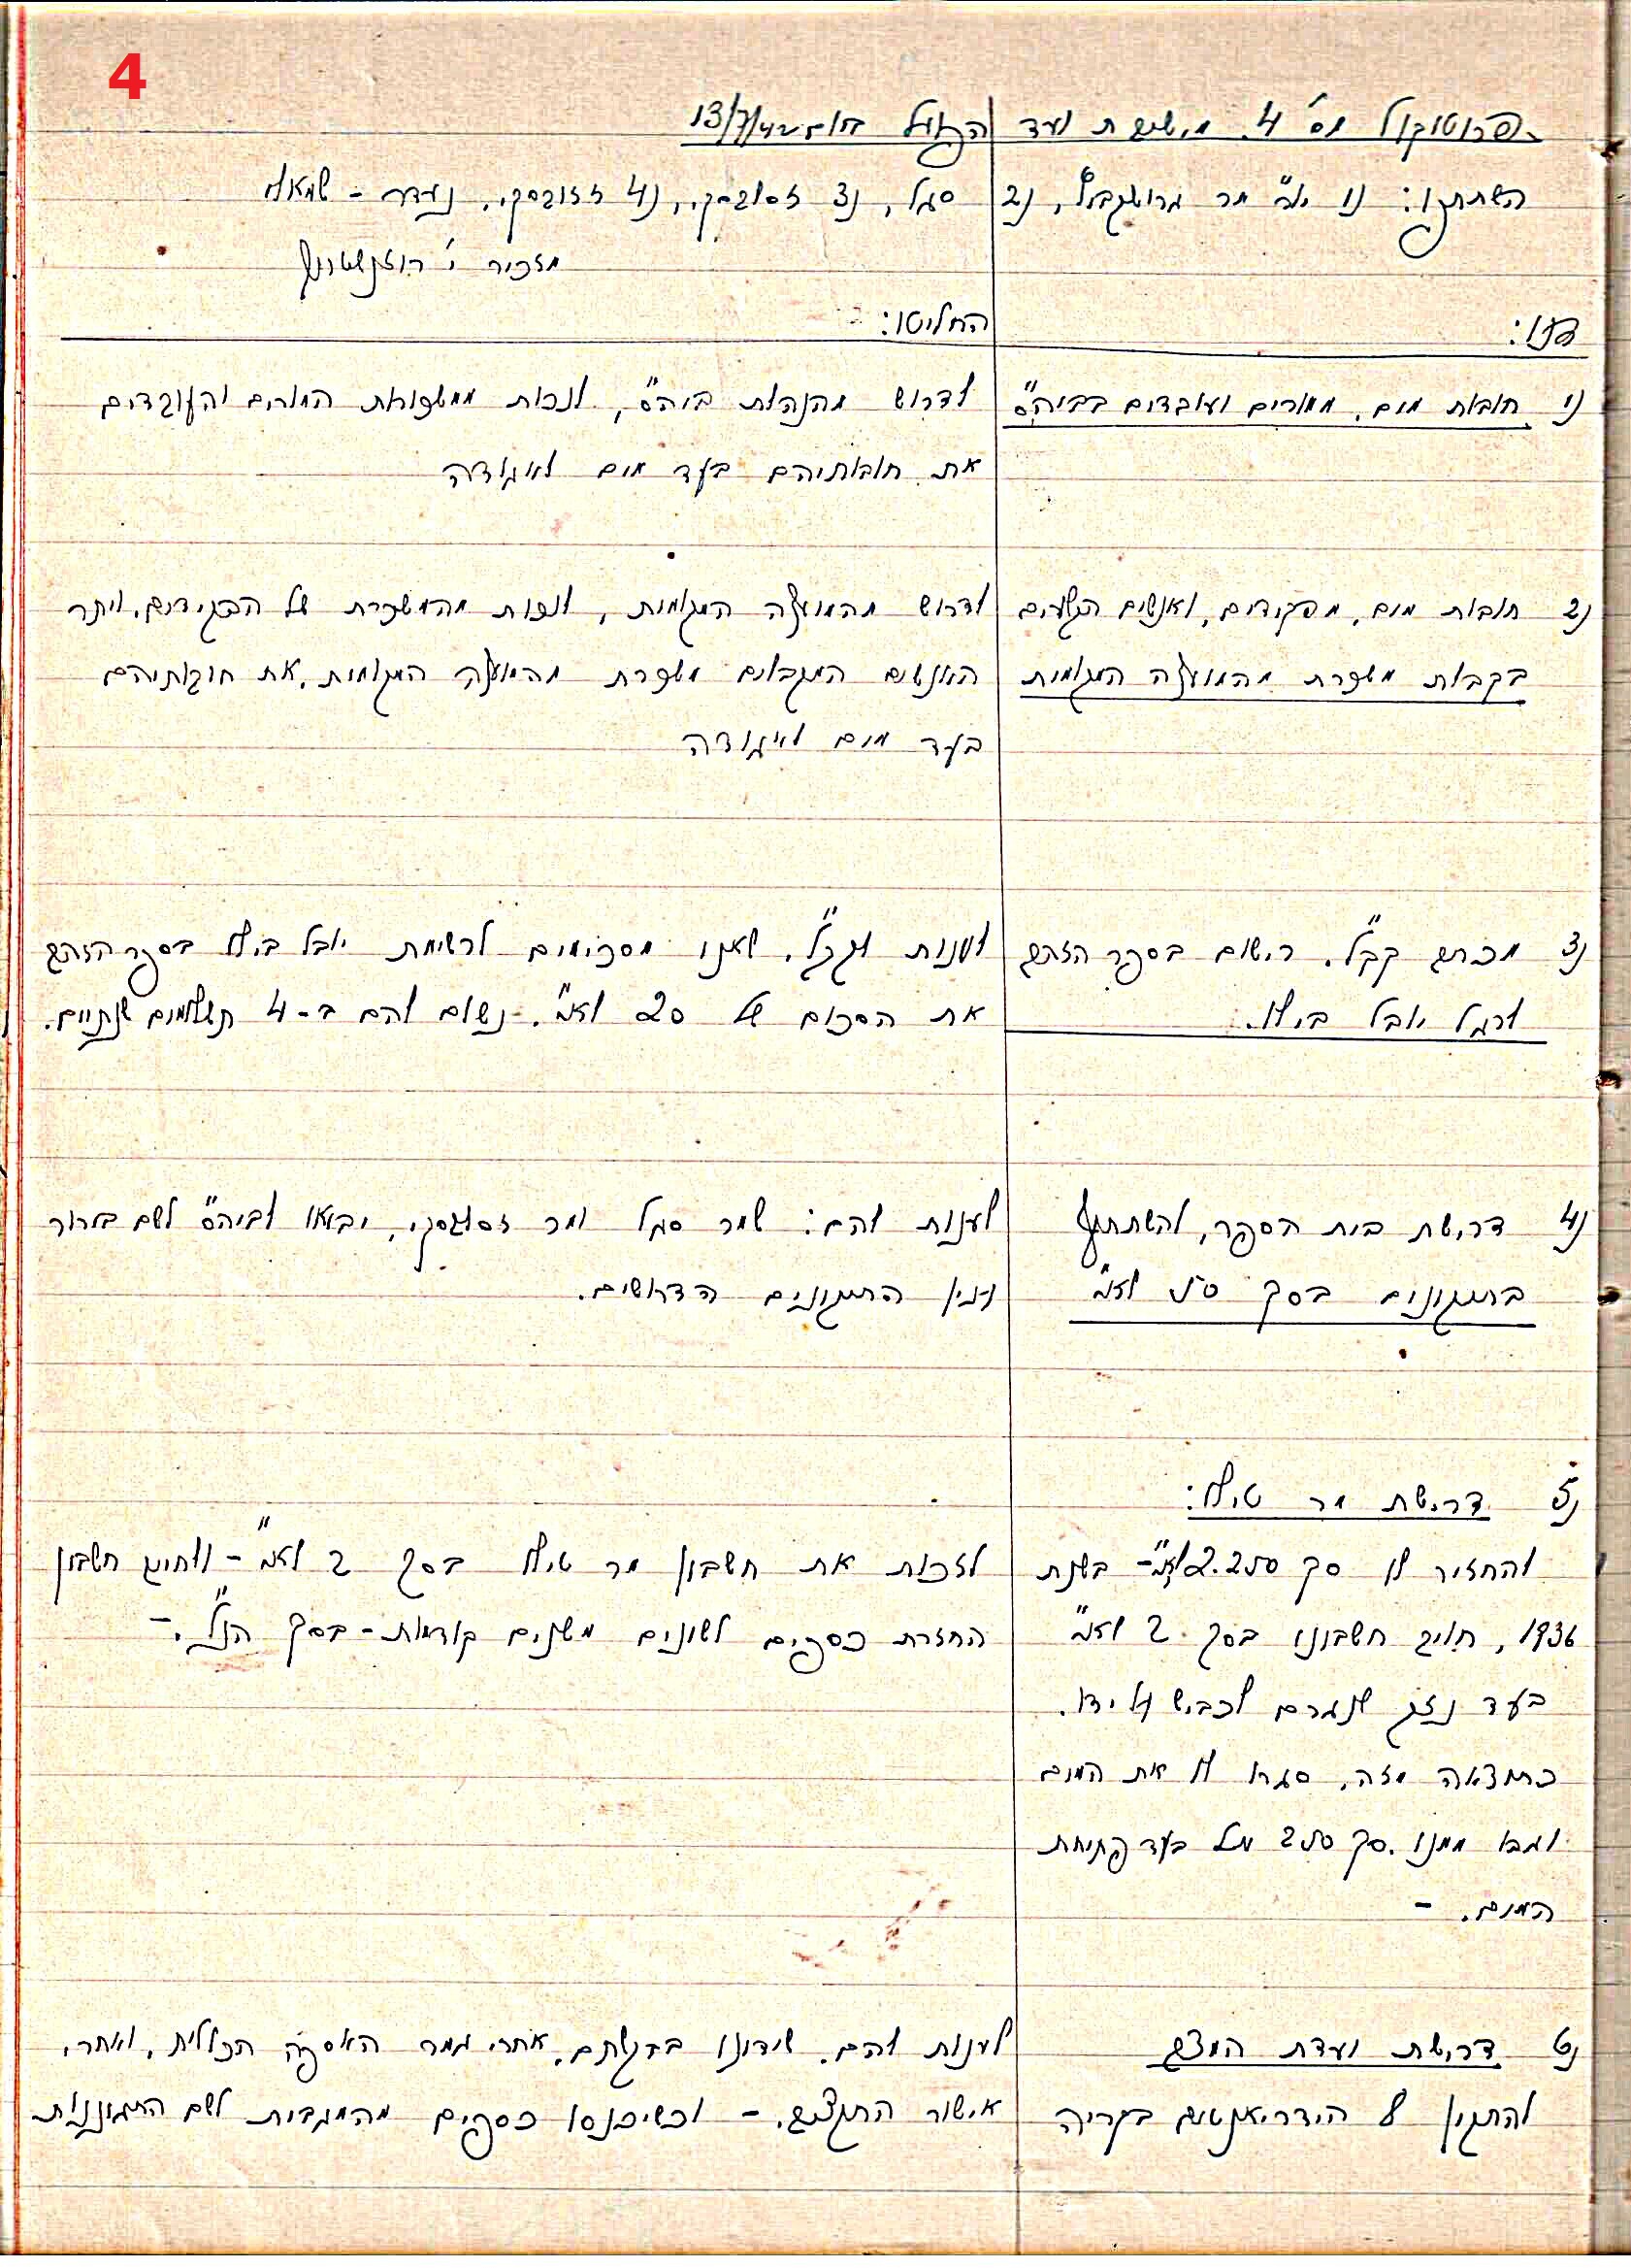 4
פרוטוקול מס' 4. מישיבת ועד הפועל ביום 13/7/42
השתתפו: 1) יו"ר מר גרוטקבלף, 2) סגל, 3) זסלבסקי, 4) נעדר - שמאלי
מזכיר י. רוטנשטרייך
דנו:
החליטו:
1) חובות מים, ממורים ועובדים בביה"ס
לדרוש מהנהלת ביה"ס, לנכות ממשכורת המורים והעובדים
את חובותיהם בעד מים לאגודה
2) חובות מים, מפקידים, ואנשים הקשורים
בקבלת משכורת מהמועצה המקומית
לדרוש מהמועצה המקומית, לנכות מהמשכורת של הפקידים, ויתר
האנשים המקבלים משכורת מהמועצה המקומית, את חובותיהם
בעד מים לאגודה
3) מכתב קק"ל. רישום בספר הזהב
לרגל יובל ביל"ו.
לענות לקק"ל, שאנו מסכימים לרשימת יובל ביל"ו בספר הזהב
את הסכום של 20 לא"י. - נשלם להם ב-4 תשלומים שנתיים.
4) דרישת בית הספר, להשתתף
בתיקונים בסך 50 לא"י
לענות להם: שמר סגל ומר זסלבסקי, יבואו לביה"ס לשם ברור
ענין התיקונים הדרושים.
5) דרישת מר
להחזיר לו סך 2.250 לא"י - בשנת
1936, חויב חשבונו בסך 2 לא"י
בעד נזק שנגרם לכביש על ידו.
כתוצאה מזה, סגרו לו את המים
וגבו ממנו סך 250 מיל בעד פתיחת
המים. -
לזכות את חשבון מר בסך 2 לא"י - ולחייב חשבון
החזרת כספים לשונים משנים קודמות - בסך הנ"ל. -
6) דרישת ועדת המצב
להתקין 8 הידראנטים בקריה
לענות להם, שידונו בבקשתם, אחרי גמר האספה הכללית, ואחרי,
אישור התקציב. - וכשיכנסו כספים מהמגבית לשם התגוננות